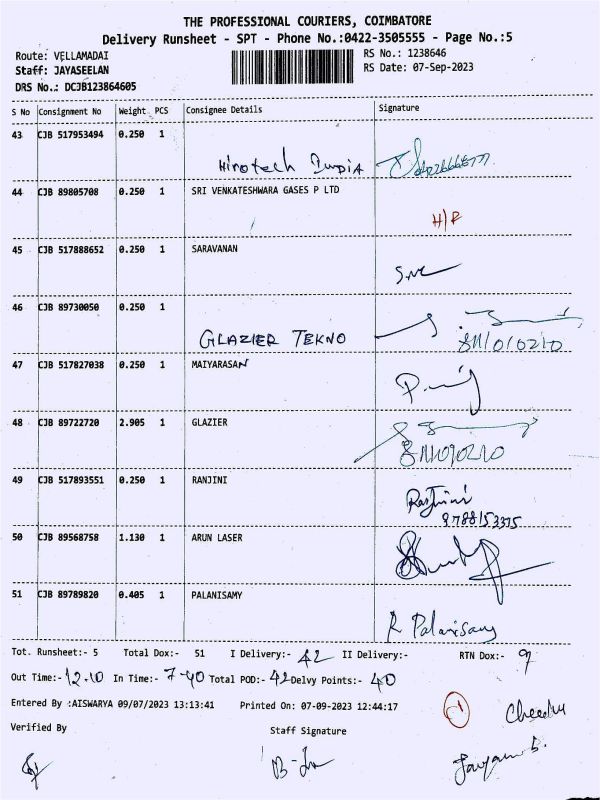 THE PROFESSIONAL COURIERS, COIMBATORE
Delivery Runsheet - SPT - Phone No.:0422-3505555 - Page No.:5
Route: VELLAMADAI
RS No.: 1238646
Staff: JAYASEELAN
RS Date: 07-Sep-2023
DRS No.: DCJB123864605
S No Consignment No Weight PCS Consignee Details Signature
43 CJB 517953494 0.250 1
Hirotech India
44 CJB 89805708 0.250 1 SRI VENKATESHWARA GASES P LTD
H/R
45 CJB 517888652 0.250 1 SARAVANAN
46 CJB 89730050 0.250 1
GLAZIER TEKNO
47 CJB 517827038 0.250 1 MAIYARASAN
48 CJB 89722720 2.905 1 GLAZIER
49 CJB 517893551 0.250 1 RANJINI
Ranjini
9788153375
50 CJB 89568758 1.130 1 ARUN LASER
51 CJB 89789820 0.405 1 PALANISAMY
R Palanisamy
Tot. Runsheet:- 5 Total Dox:- 51 I Delivery:- 42 II Delivery:- RTN Dox:- 9
Out Time:- 12.10 In Time:- 7-40 Total POD:- 42 Delvy Points:- 40
Entered By :AISWARYA 09/07/2023 13:13:41 Printed On: 07-09-2023 12:44:17
Verified By
Staff Signature